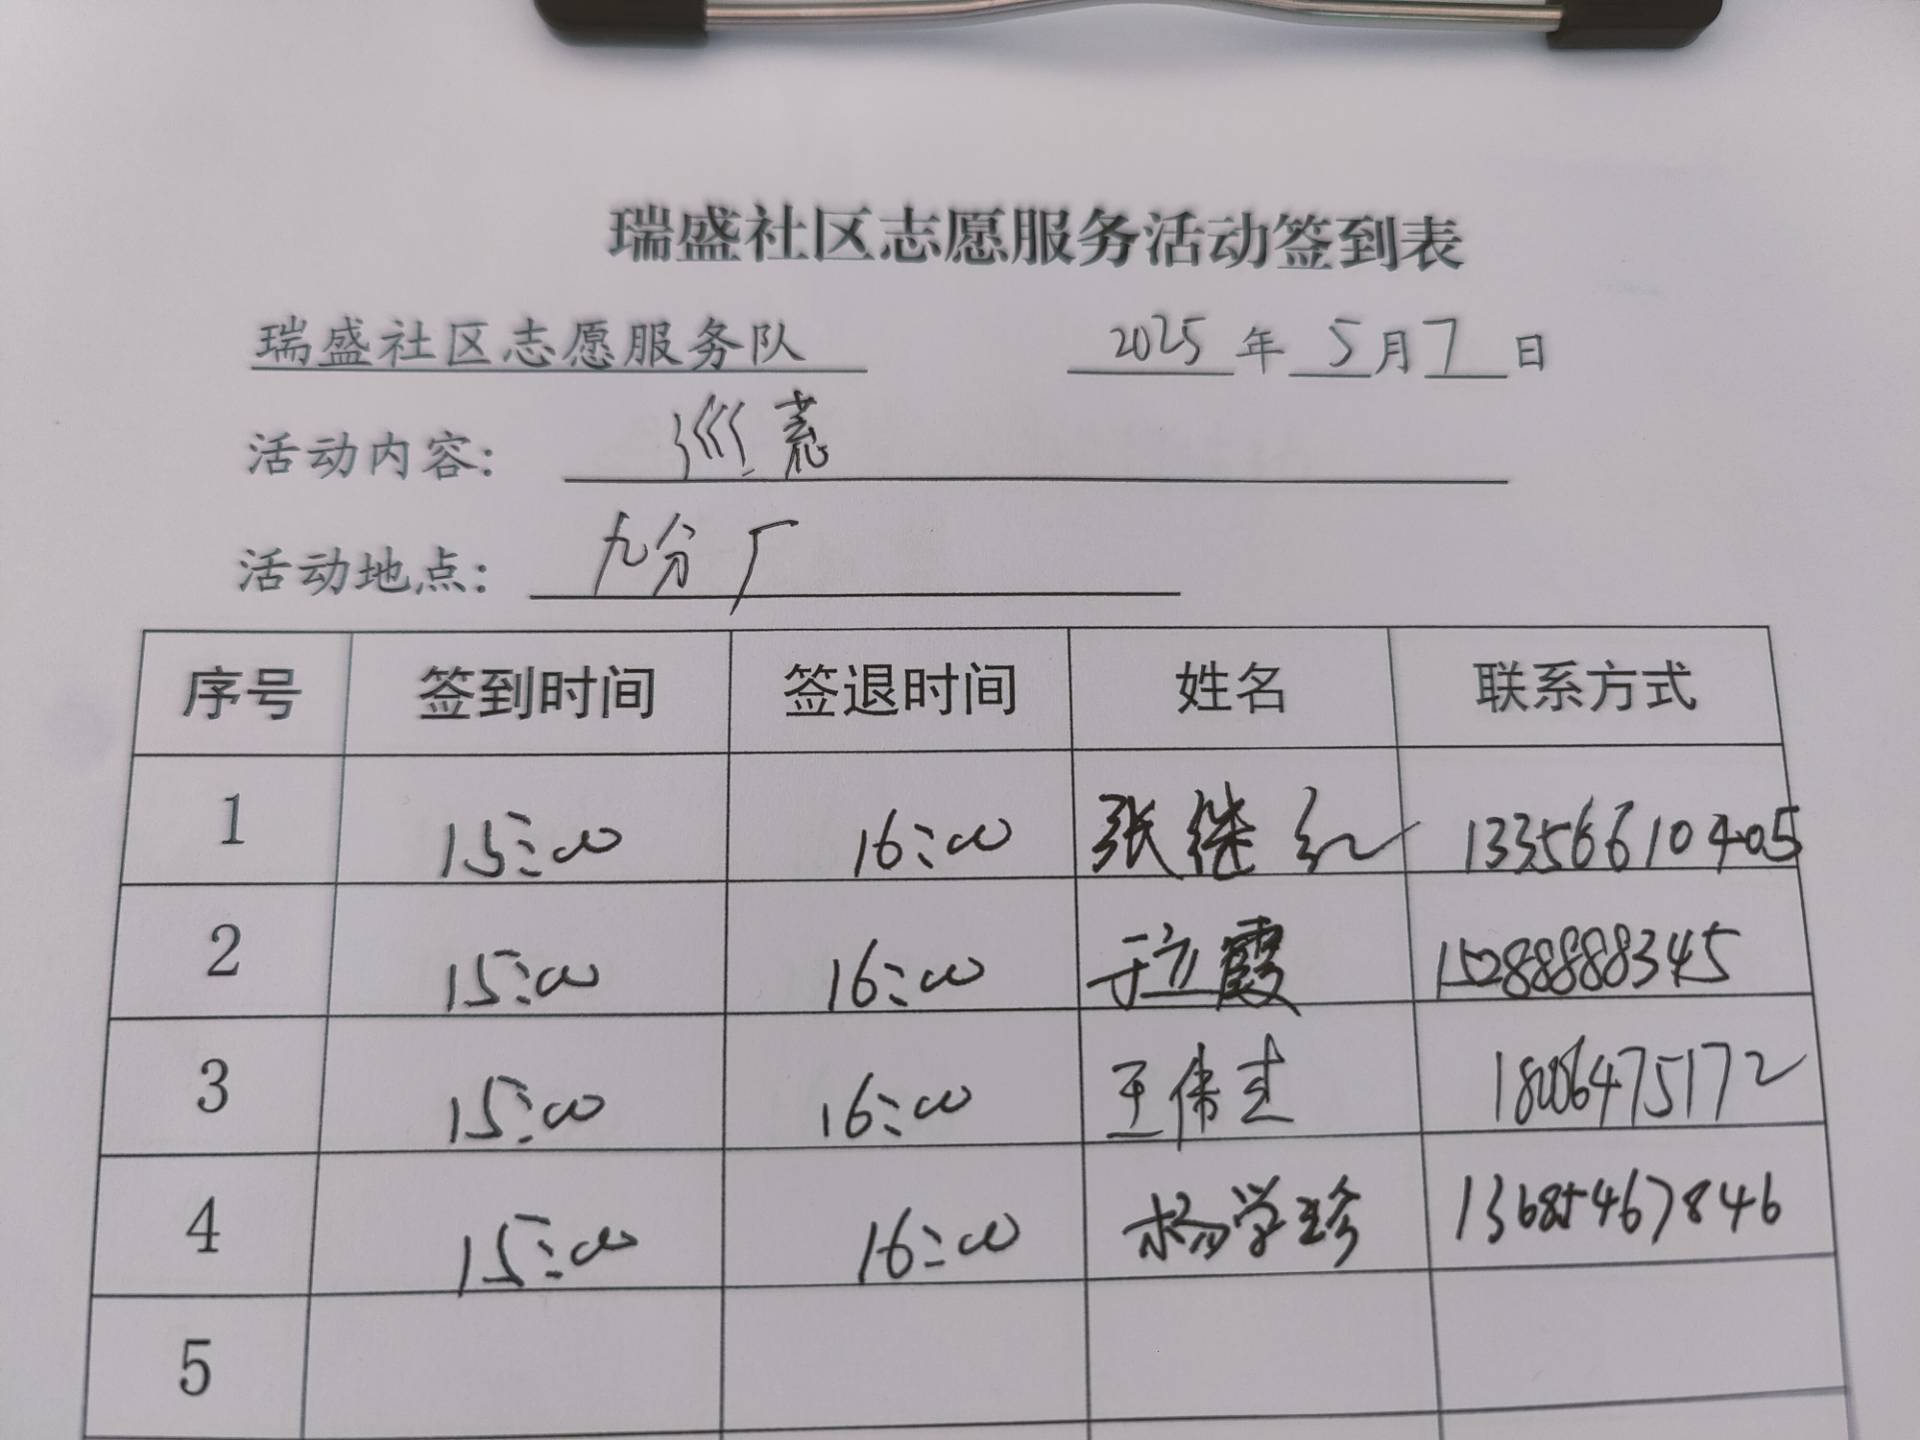 瑞盛社区志愿服务活动签到表
瑞盛社区志愿服务队 2025年5月7日
活动内容:
活动地点: 九分厂
序号 签到时间 签退时间 姓名 联系方式
1 15:00 16:00 张继红 13356610405
2 15:00 16:00 于立霞 15288888345
3 15:00 16:00 王伟 18006475172
4 15:00 16:00 杨学珍 13685467846
5